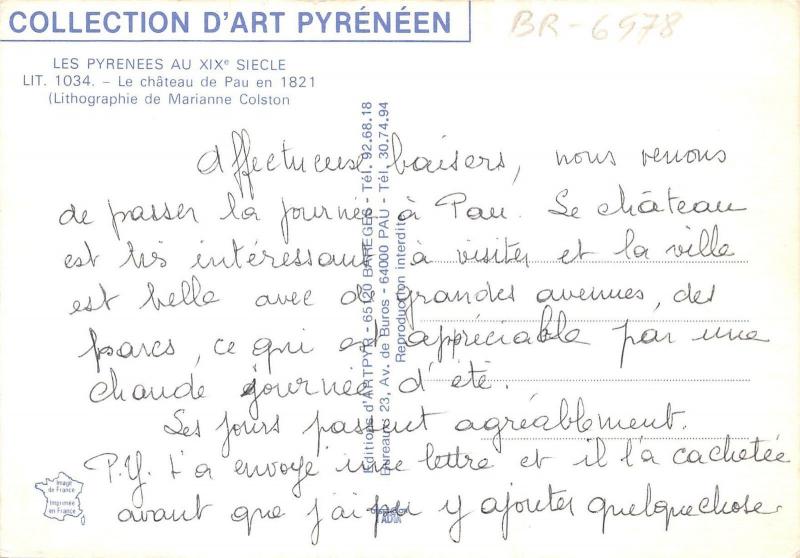 COLLECTION D'ART PYRÉNÉEN
BR-6978
LES PYRENEES AU XIXe SIECLE
LIT. 1034. - Le château de Pau en 1821
(Lithographie de Marianne Colston
Editions d'ARTPYR - 65120 BAREGES - Tél. 92.68.18
Bureaux 23, Av. de Buros - 64000 PAU - Tél. 30.74.94
Reproduction interdite
Affectueuse baisers, nous venons
de passer la journée à Pau. Le château
est très intéressant à visiter et la ville
est belle avec de grandes avenues, des
parcs, ce qui est appréciable par une
chaude journée d'été.
Les jours passent agréablement.
P.Y. t'a envoyé une lettre et il l'a cachetée
avant que j'ai pu y ajouter quelquechose.
Image
de France
Imprimée
en France